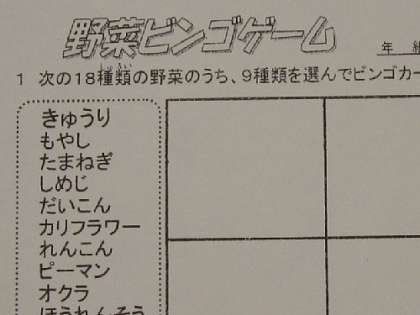 野菜ビンゴゲーム
年 組
1 次の18種類の野菜のうち、9種類を選んでビンゴカー
きゅうり
もやし
たまねぎ
しめじ
だいこん
カリフラワー
れんこん
ピーマン
オクラ
ほうれんそう